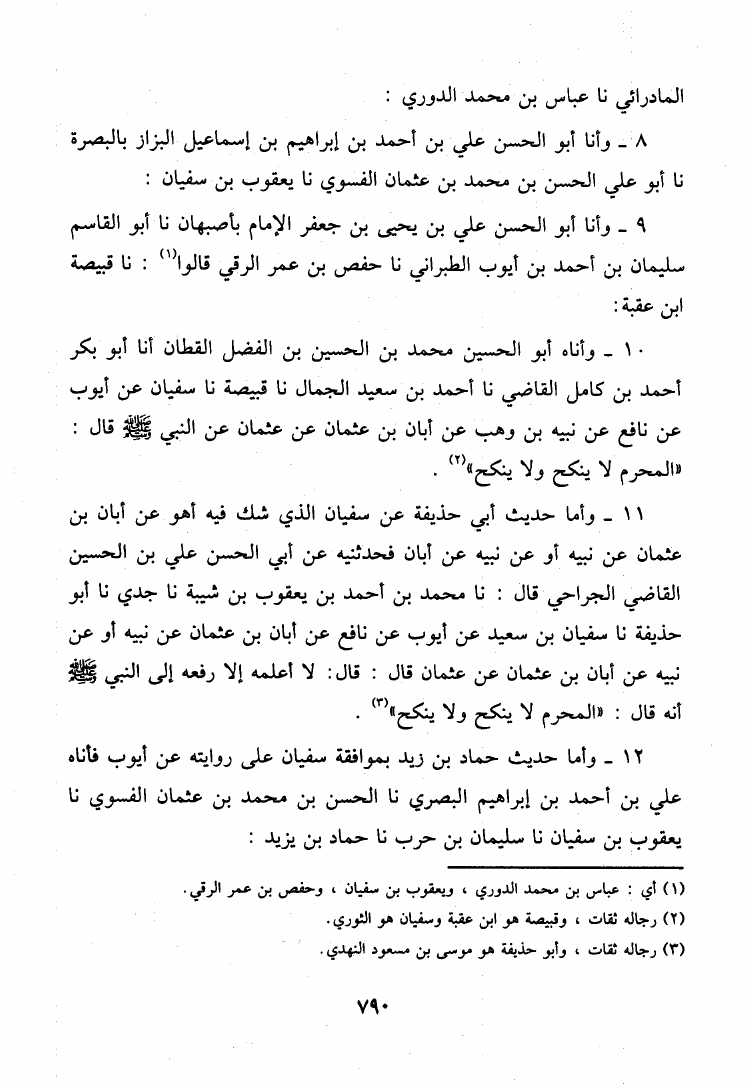 المادرائي نا عباس بن محمد الدوري :
٨ ـ وأنا أبو الحسن علي بن أحمد بن إبراهيم بن إسماعيل البزاز بالبصرة
نا أبو علي الحسن بن محمد بن عثمان الفسوي نا يعقوب بن سفيان :
٩ ـ وأنا أبو الحسن علي بن يحيى بن جعفر الإمام بأصبهان نا أبو القاسم
سليمان بن أحمد بن أيوب الطبراني نا حفص بن عمر الرقي قالوا(١) : نا قبيصة
ابن عقبة :
١٠ ـ وأناه أبو الحسين محمد بن الحسين بن الفضل القطان أنا أبو بكر
أحمد بن كامل القاضي نا أحمد بن سعيد الجمال نا قبيصة نا سفيان عن أيوب
عن نافع عن نبيه بن وهب عن أبان بن عثمان عن عثمان عن النبي ﷺ قال :
«المحرم لا ينكح ولا ينكح»(٢) .
١١ ـ وأما حديث أبي حذيفة عن سفيان الذي شك فيه أهو عن أبان بن
عثمان عن نبيه أو عن نبيه عن أبان فحدثنيه عن أبي الحسن علي بن الحسين
القاضي الجراحي قال : نا محمد بن أحمد بن يعقوب بن شيبة نا جدي نا أبو
حذيفة نا سفيان بن سعيد عن أيوب عن نافع عن أبان بن عثمان عن نبيه أو عن
نبيه عن أبان بن عثمان عن عثمان قال : قال: لا أعلمه إلا رفعه إلى النبي ﷺ
أنه قال : «المحرم لا ينكح ولا ينكح»(٣) .
١٢ ـ وأما حديث حماد بن زيد بموافقة سفيان على روايته عن أيوب فأناه
علي بن أحمد بن إبراهيم البصري نا الحسن بن محمد بن عثمان الفسوي نا
يعقوب بن سفيان نا سليمان بن حرب نا حماد بن يزيد :
(١) أي : عباس بن محمد الدوري ، ويعقوب بن سفيان ، وحفص بن عمر الرقي.
(٢) رجاله ثقات ، وقبيصة هو ابن عقبة وسفيان هو الثوري.
(٣) رجاله ثقات ، وأبو حذيفة هو موسى بن مسعود النهدي.
٧٩٠